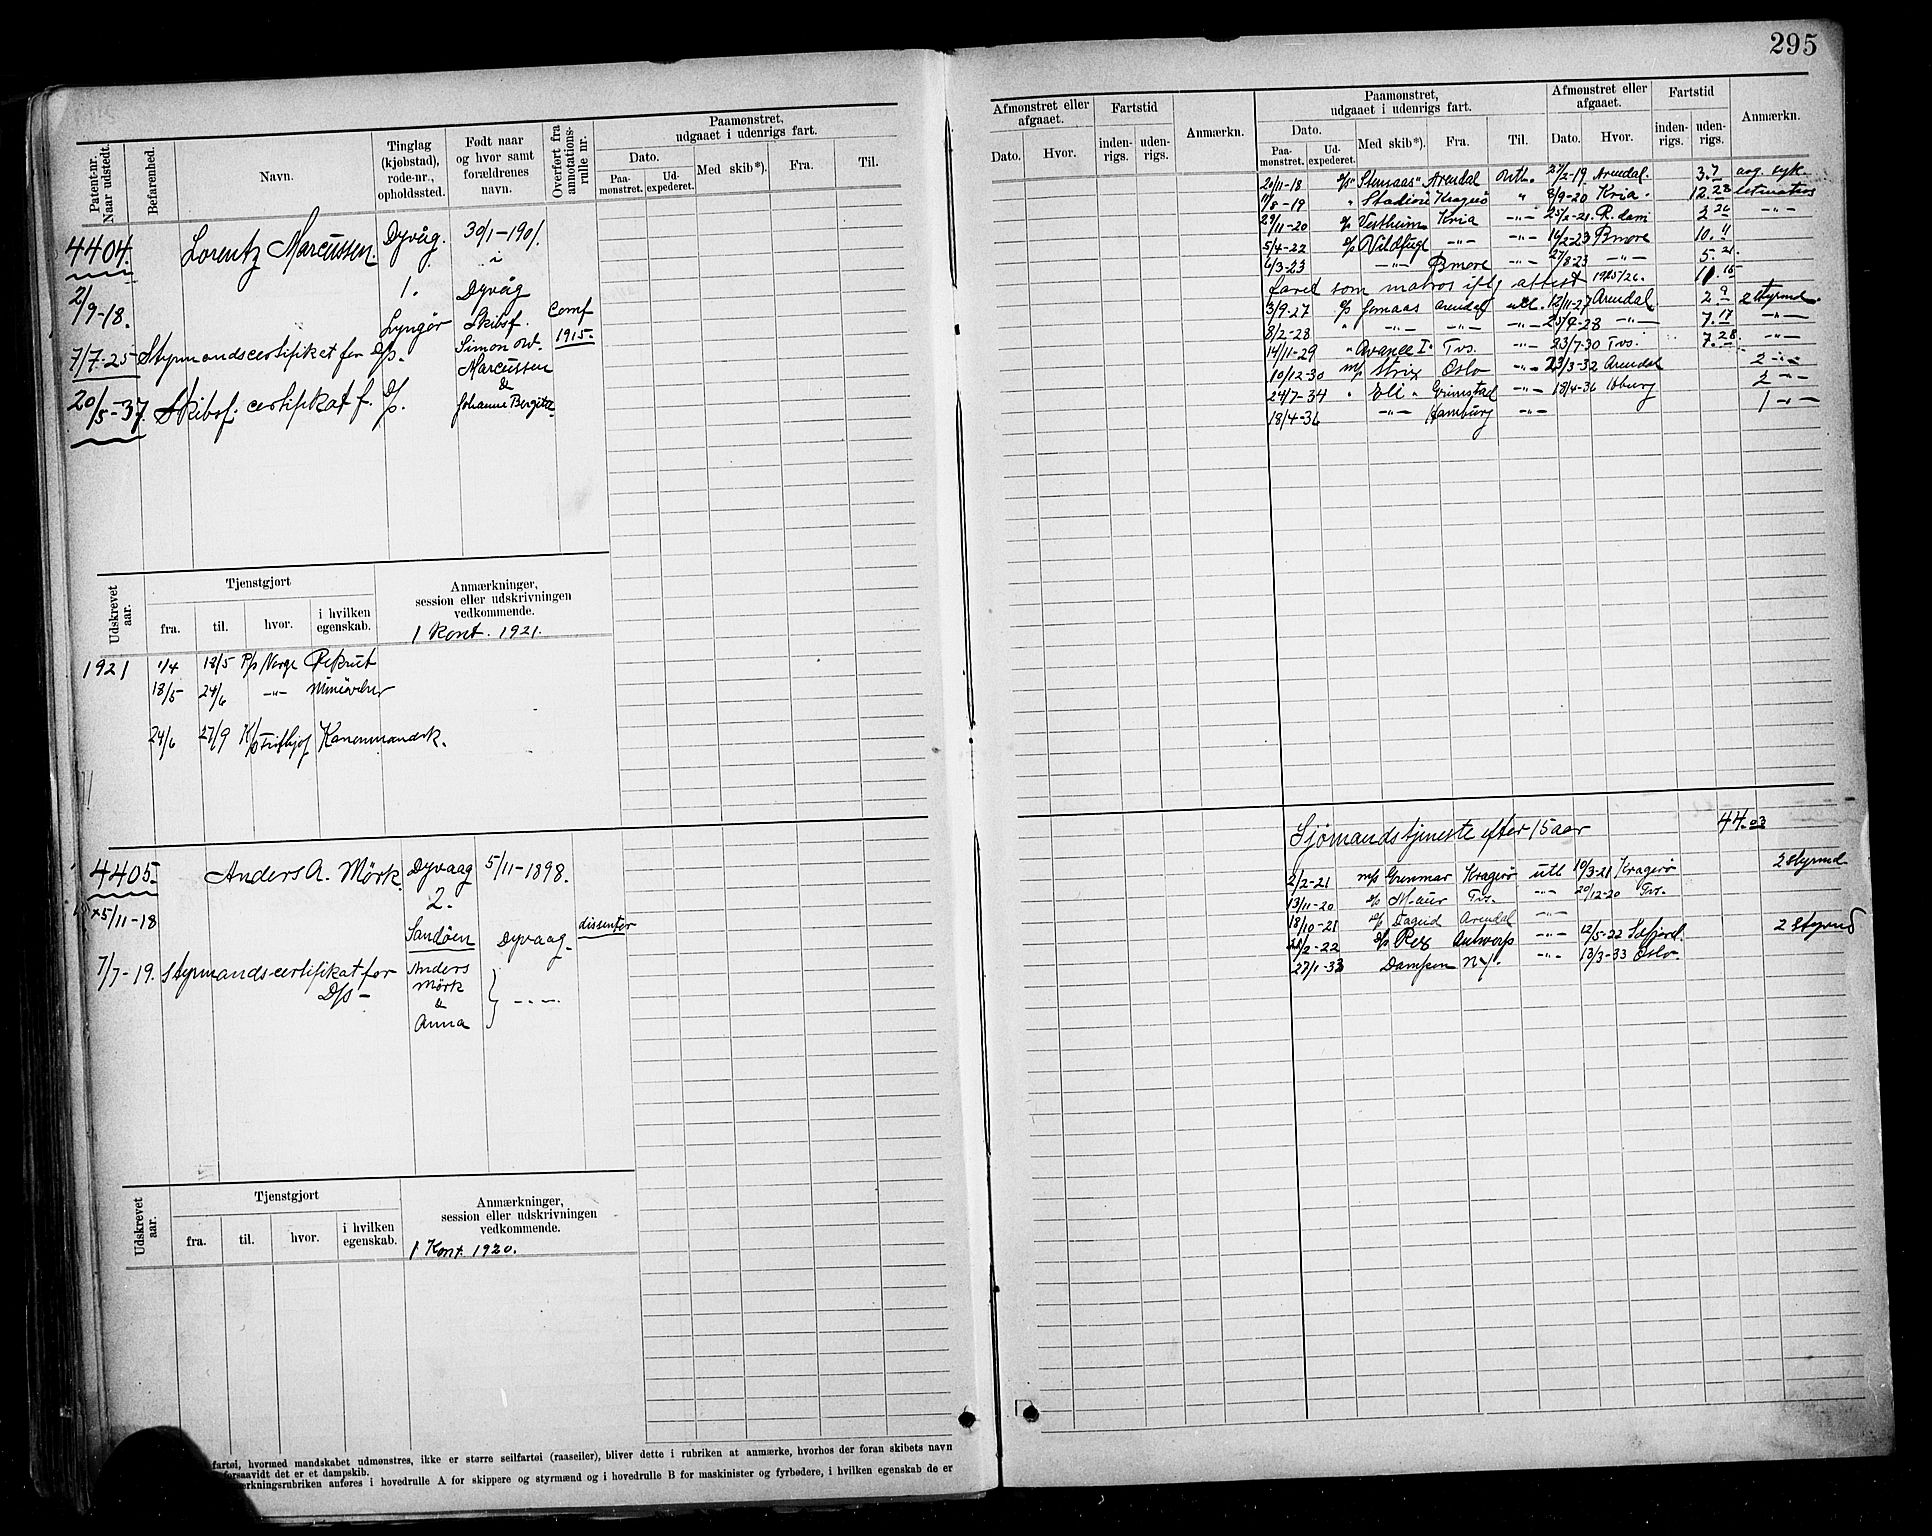 295
Patent-nr.
Naar udstedt.
Befarenhed.
Navn.
Tinglag
(kjøbstad),
rode-nr.,
opholdssted.
Født naar
og hvor samt
forældrenes
navn.
Overført fra
annotations-
rulle nr.
Paamønstret,
udgaaet i udenrigs fart.
Dato.
Paa-
mønstret.
Ud-
expederet.
Med skib*).
Fra.
Til.
4404. Lorentz Marcussen. Dyvåg. 30/1-1901.
i
1. Dyvåg
2/9-18. Lyngör Skibsf. Conf
1915.
7/7-25 Styrmandscertifiket for D/s. Simon
Marcussen
&
20/5-37. Skibsf. certifikat f. D/s. Johanne Bergitte
Udskrevet
aar.
Tjenstgjort
fra. til. hvor. i hvilken
egenskab.
Anmærkninger,
session eller udskrivningen
vedkommende.
1 Kont. 1921.
1921 1/4 18/5 P/s Norge Rekrut
18/5 24/6 -"-
24/6 27/9 Fritjhof Kanonmandsk.
4405. Anders A. Mörk. Dyvaag 5/11-1898.
2.
5/11-18
Sandöen Dyvaag. dissenter
7/7-19. Styrmands-certifikat for
D/s -
Anders
Mörk
&
Anna
-"-
Udskrevet
aar.
Tjenstgjort
fra. til. hvor. i hvilken
egenskab.
Anmærkninger,
session eller udskrivningen
vedkommende.
1 Kont. 1920.
fartøi, hvormed mandskabet udmønstres, ikke er større seilfartøi (raaseiler), bliver dette i rubriken at anmærke, hvorhos der foran skibets navn
forsaavidt det er et dampskib.
rkningsrubriken anføres i hovedrulle A for skippere og styrmænd og i hovedrulle B for maskinister og fyrbødere, i hvilken egenskab de er
Afmønstret eller
afgaaet.
Dato. Hvor.
Fartstid
inden-
rigs.
uden-
rigs.
Anmærkn.
Paamønstret,
udgaaet i udenrigs fart.
Dato.
Paa-
mønstret.
Ud-
expederet.
Med skib*). Fra. Til.
Afmønstret eller
afgaaet.
Dato. Hvor.
Fartstid
inden-
rigs.
uden-
rigs.
Anmærkn.
20/11-18 "Stensaas" Arendal 27/2-19 Arendal. 3.7
7/8-19 " Stadion" Kragerö " 8/9-20 Kria. 12.28 letmatros
29/11-20 Vestheim Kria -"- 25/2-21 R.dam 2.26 -"-
5/4-22 Vildfugl -"- -"- 16/2-23 Bmore 10.11
6/3-23 -"- Bmore -"- 27/8-23 -"- 5.21
faret som matros iflg attest 1925/26. 11.15
3/9-27 Jomaas Arendal utl. 12/11-27 Arendal 2.9 2 styrmd.
8/2-28 " -"- -"- -"- 25/9-28 -"- 7.17 -"-
14/11-29 " Avance I" Tvs. -"- 23/7-30 Tvs. 7.28 -"-
10/12-30 m/s Strix Oslo -"- 23/3-32 Arendal 2 -"-
24/7-34 " Eli " Grimstad -"- 18/4-36 Hburg 2 -"-
18/4-36 -"- Hamburg -"- 1 -"-
Sjömandstjeneste efter 15 aar 44.03
2/2-21 m/s Grenmar Kragerö utl 10/3-21 Kragerö 2 styrmd
13/11-20 Maur Tvs. -"- 20/12-20 Tvs.
18/10-21 Dagrid Arendal -"-
2-22 D/s Reg Antwerp -"- 12/5-22 2 Styrmd
27/1-33 Dampen N.Y. -"- 13/3-33 Oslo.